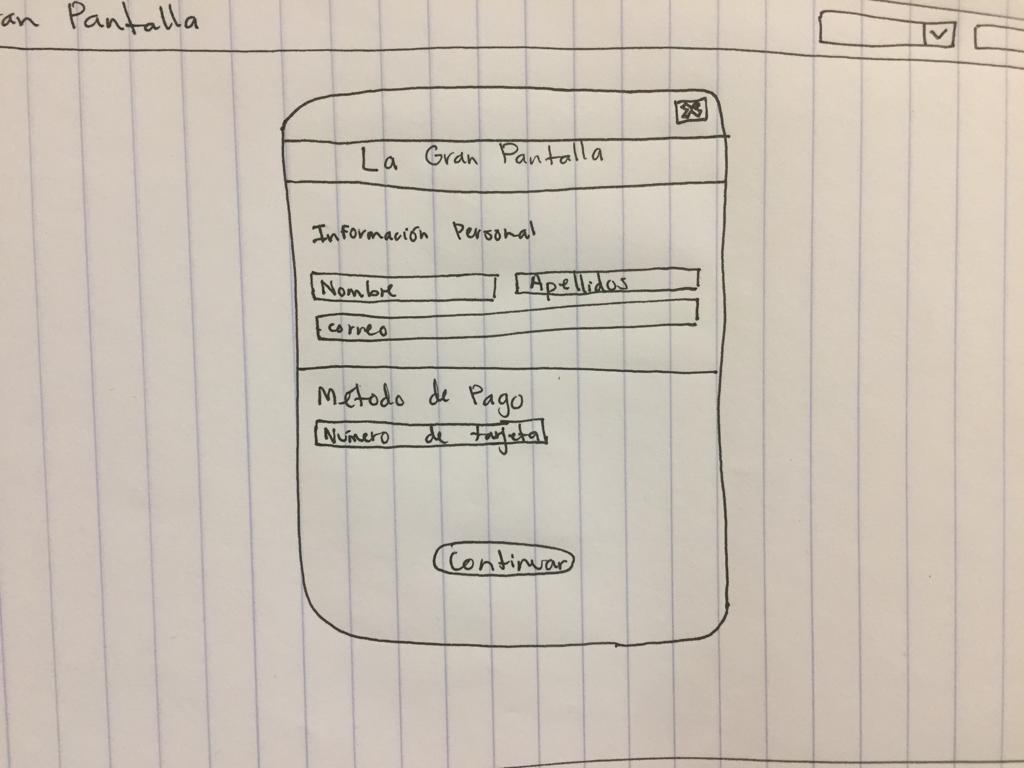 ran Pantalla
La Gran Pantalla
Información Personal
Nombre
Apellidos
correo
Método de Pago
Número de tarjeta
Continuar